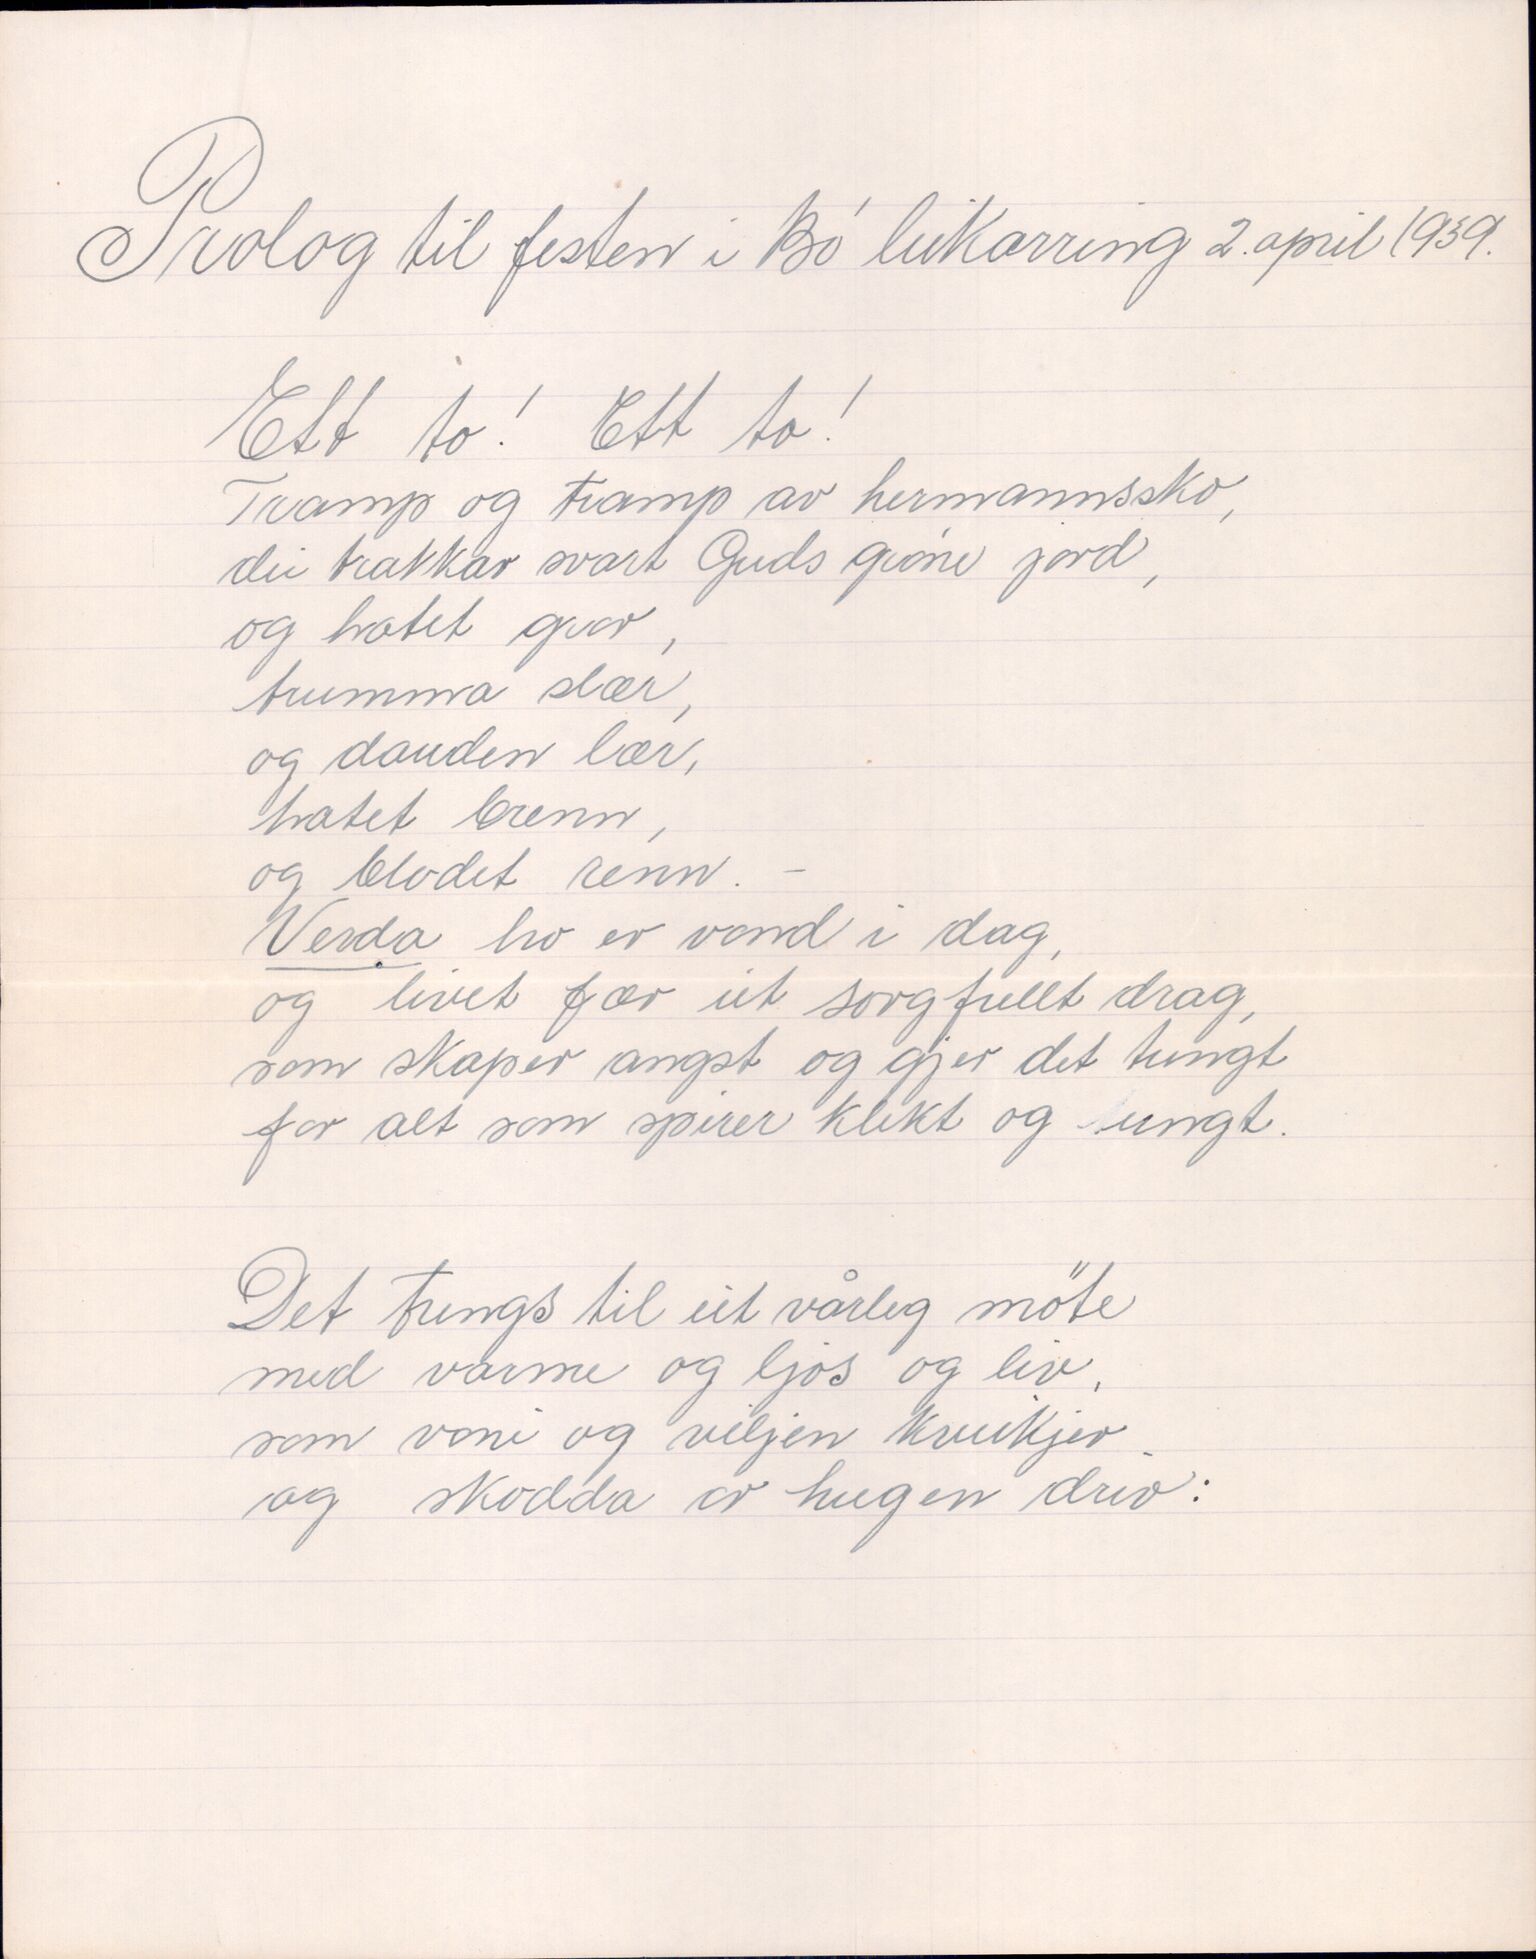 Prolog til festen i Bö leikarring 2. april 1939.
Ett to! Ett to!
Tramp og tramp av hermannssko,
dei trakkar svart Guds gröne jord,
og hatet gror,
trumma slær,
og dauden lær,
hatet brenn,
og blodet renn. -
Verda ho er vond i dag,
og livet fær eit sorgfullt drag,
som skaper angst og gjer det tungt
for alt som spirer klekt og ungt.
Det trengs til eit vårleg möte
med varme og ljos og liv,
som voni og viljen kveikjer
og skodda or hugen driv: